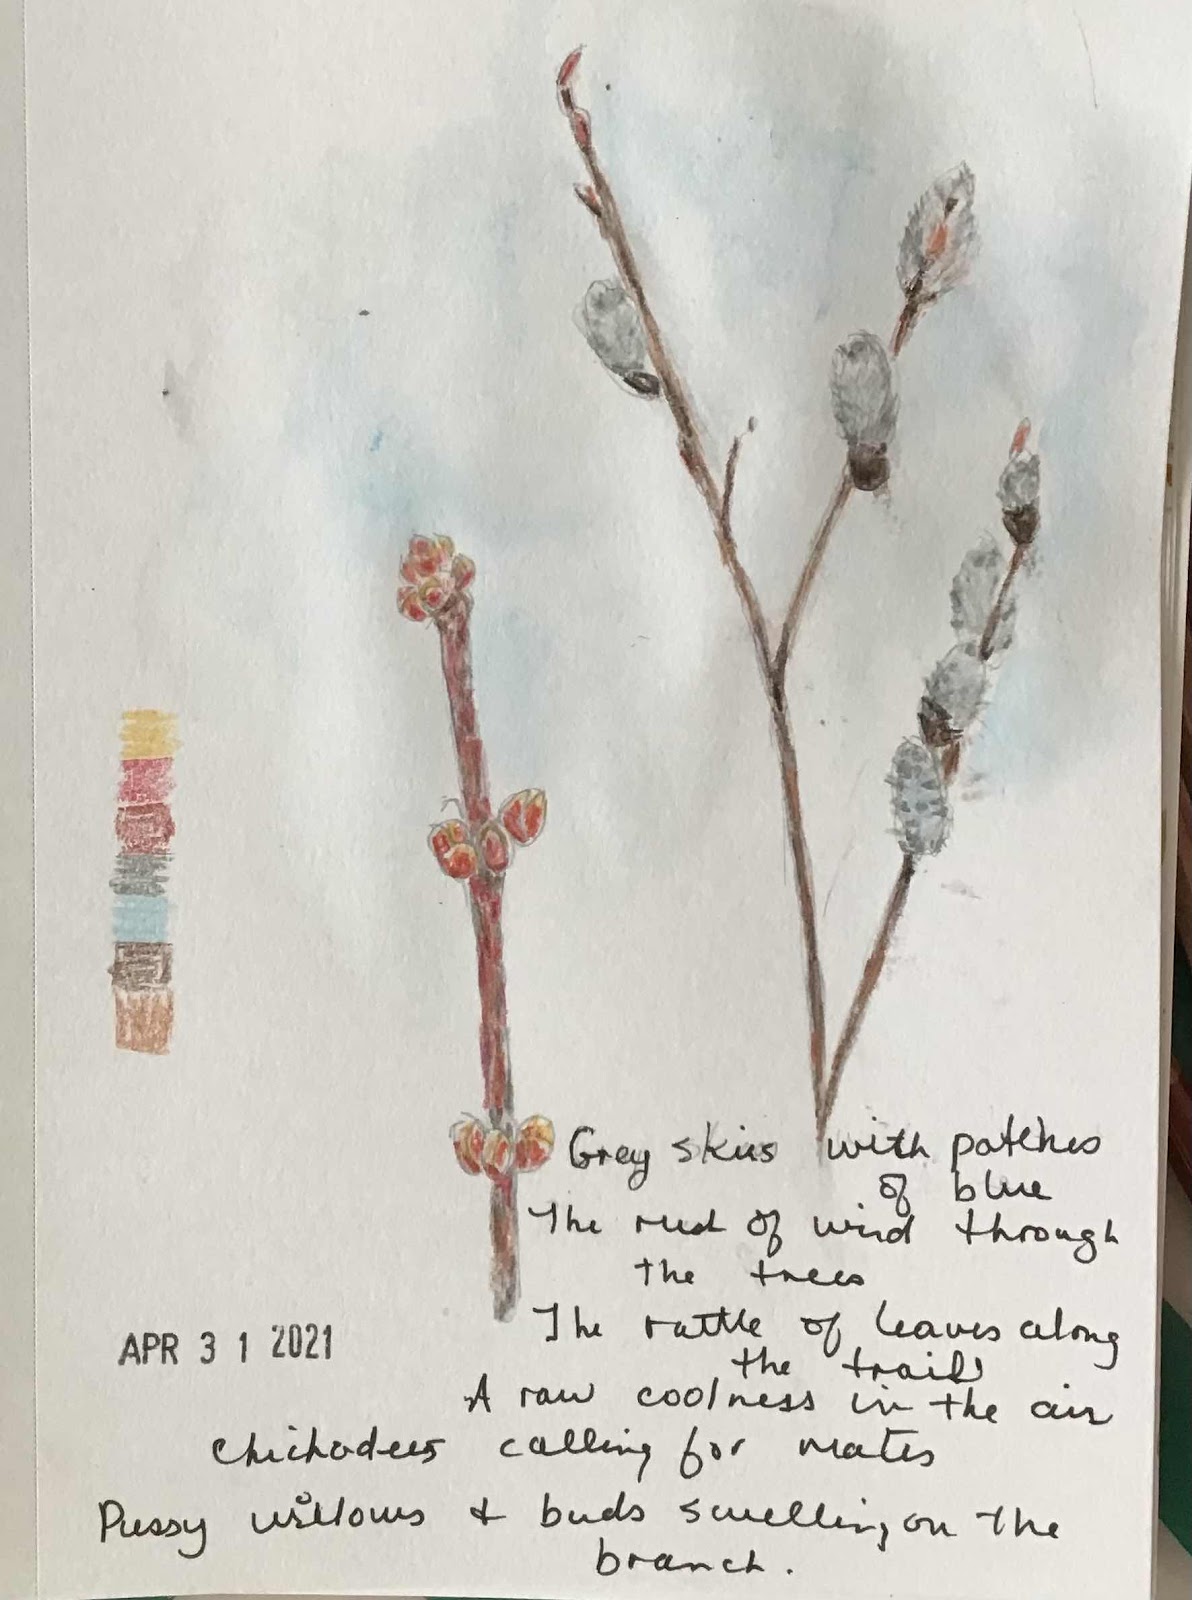 Grey skies with patches
of blue
The rush of wind through
the trees
The rattle of leaves along
the trail
A raw coolness in the air
chickadees calling for mates
Pussy willows & buds swelling on the
branch.
APR 31 2021